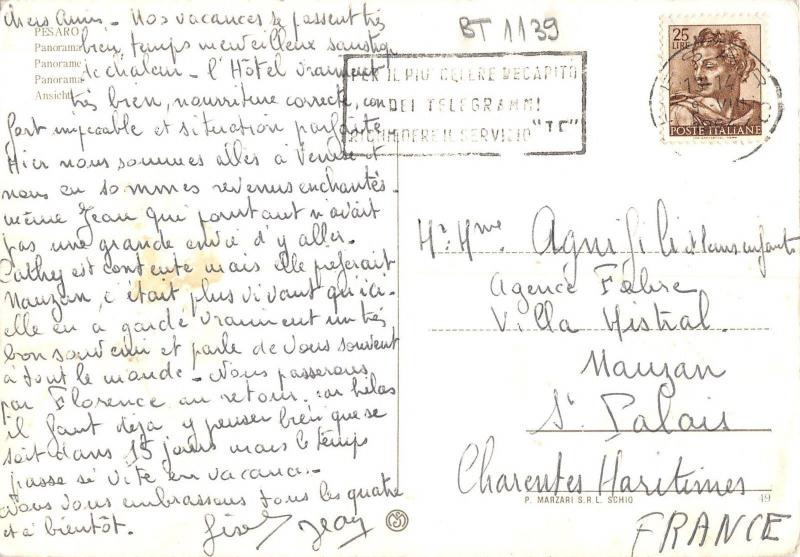 Chers Amis - Nos vacances se passent très
bien, temps merveilleux sans trop
de chaleur - l'Hôtel vraiment
très bien, nourriture correcte, con
fort impecable et situation parfaite
Hier nous sommes allés à Venise et
nous en sommes revenus enchantés -
même Jean qui pourtant n'avait
pas une grande envie d'y aller.
Cathy est contente mais elle préférait
Nauzan, c'était plus vivant qu'ici -
elle en a gardé vraiment un très
bon souvenir et parle de vous souvent
à tout le monde - Nous passerons
par Florence au retour. car hélas
il faut déjà y penser bien que ce
soit dans 15 jours mais le temps
passe si vite en vacances. -
Nous vous embrassons tous les quatre
et à bientôt.
Jean
PESARO
Panorama
Panorame
Panorama
Ansicht
BT 1139
PER IL PIU' CELERE RECAPITO
DEI TELEGRAMMI
RICHIEDERE IL SERVIZIO "TC"
25
LIRE
POSTE ITALIANE
Mr. Mme Agnifili et leurs enfants
Agence Fabre
Villa Mistral.
Nauzan
St Palais
Charentes Maritimes
FRANCE
P. MARZARI S.R.L. SCHIO
49